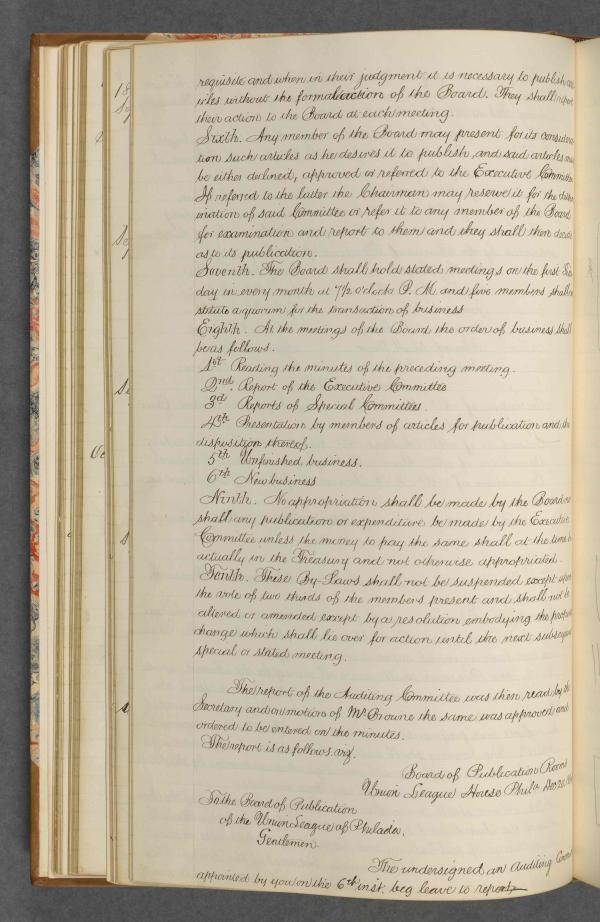 requisite and when in their judgment it is necessary to publish
icles without the formal action of the Board. They shall report
their action to the Board at each meeting.
Sixth. Any member of the Board may present for its considera
tion such articles as he desires it to publish, and said articles
be either declined, approved or referred to the Executive Committee
If referred to the latter the Chairman may reserve it for the
ination of said Committee or refer it to any member of the Board
for examination and report to them and they shall then decide
as to its publication.
Seventh. The Board shall hold stated meetings on the first
day in every month at 7½ o'clock P. M. and five members shall
stitute a quorum for the transaction of business
Eighth. At the meetings of the Board the order of business shall
be as follows.
1st Reading the minutes of the preceding meeting.
2nd. Report of the Executive Committee
3d Reports of Special Committees.
4th Presentation by members of articles for publication and the
disposition thereof.
5th Unfinished business.
6th New business
Ninth. No appropriation shall be made by the Board
shall any publication or expenditure be made by the Executive
Committee unless the money to pay the same shall at the time
actually in the Treasury and not otherwise appropriated.
Tenth. These By-Laws shall not be suspended except upon
the vote of two thirds of the members present and shall not be
altered or amended except by a resolution embodying the
change which shall lie over for action until the next
special or stated meeting.
The report of the Auditing Committee was then read by the
Secretary and on motion of Mr Browne the same was approved and
ordered to be entered on the minutes.
The report is as follows.
Board of Publication Rooms
Union League House Phila
To the Board of Publication
of the Union League of Philada.
Gentlemen
The undersigned, an Auditing
appointed by you on the 6th inst. beg leave to report,